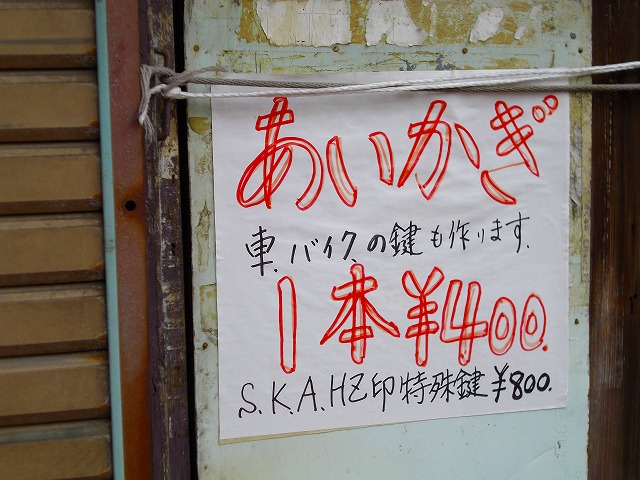 あいかぎ
車.バイク.の鍵も作ります.
1本¥400.
S.K.A.HZ印特殊鍵¥800.